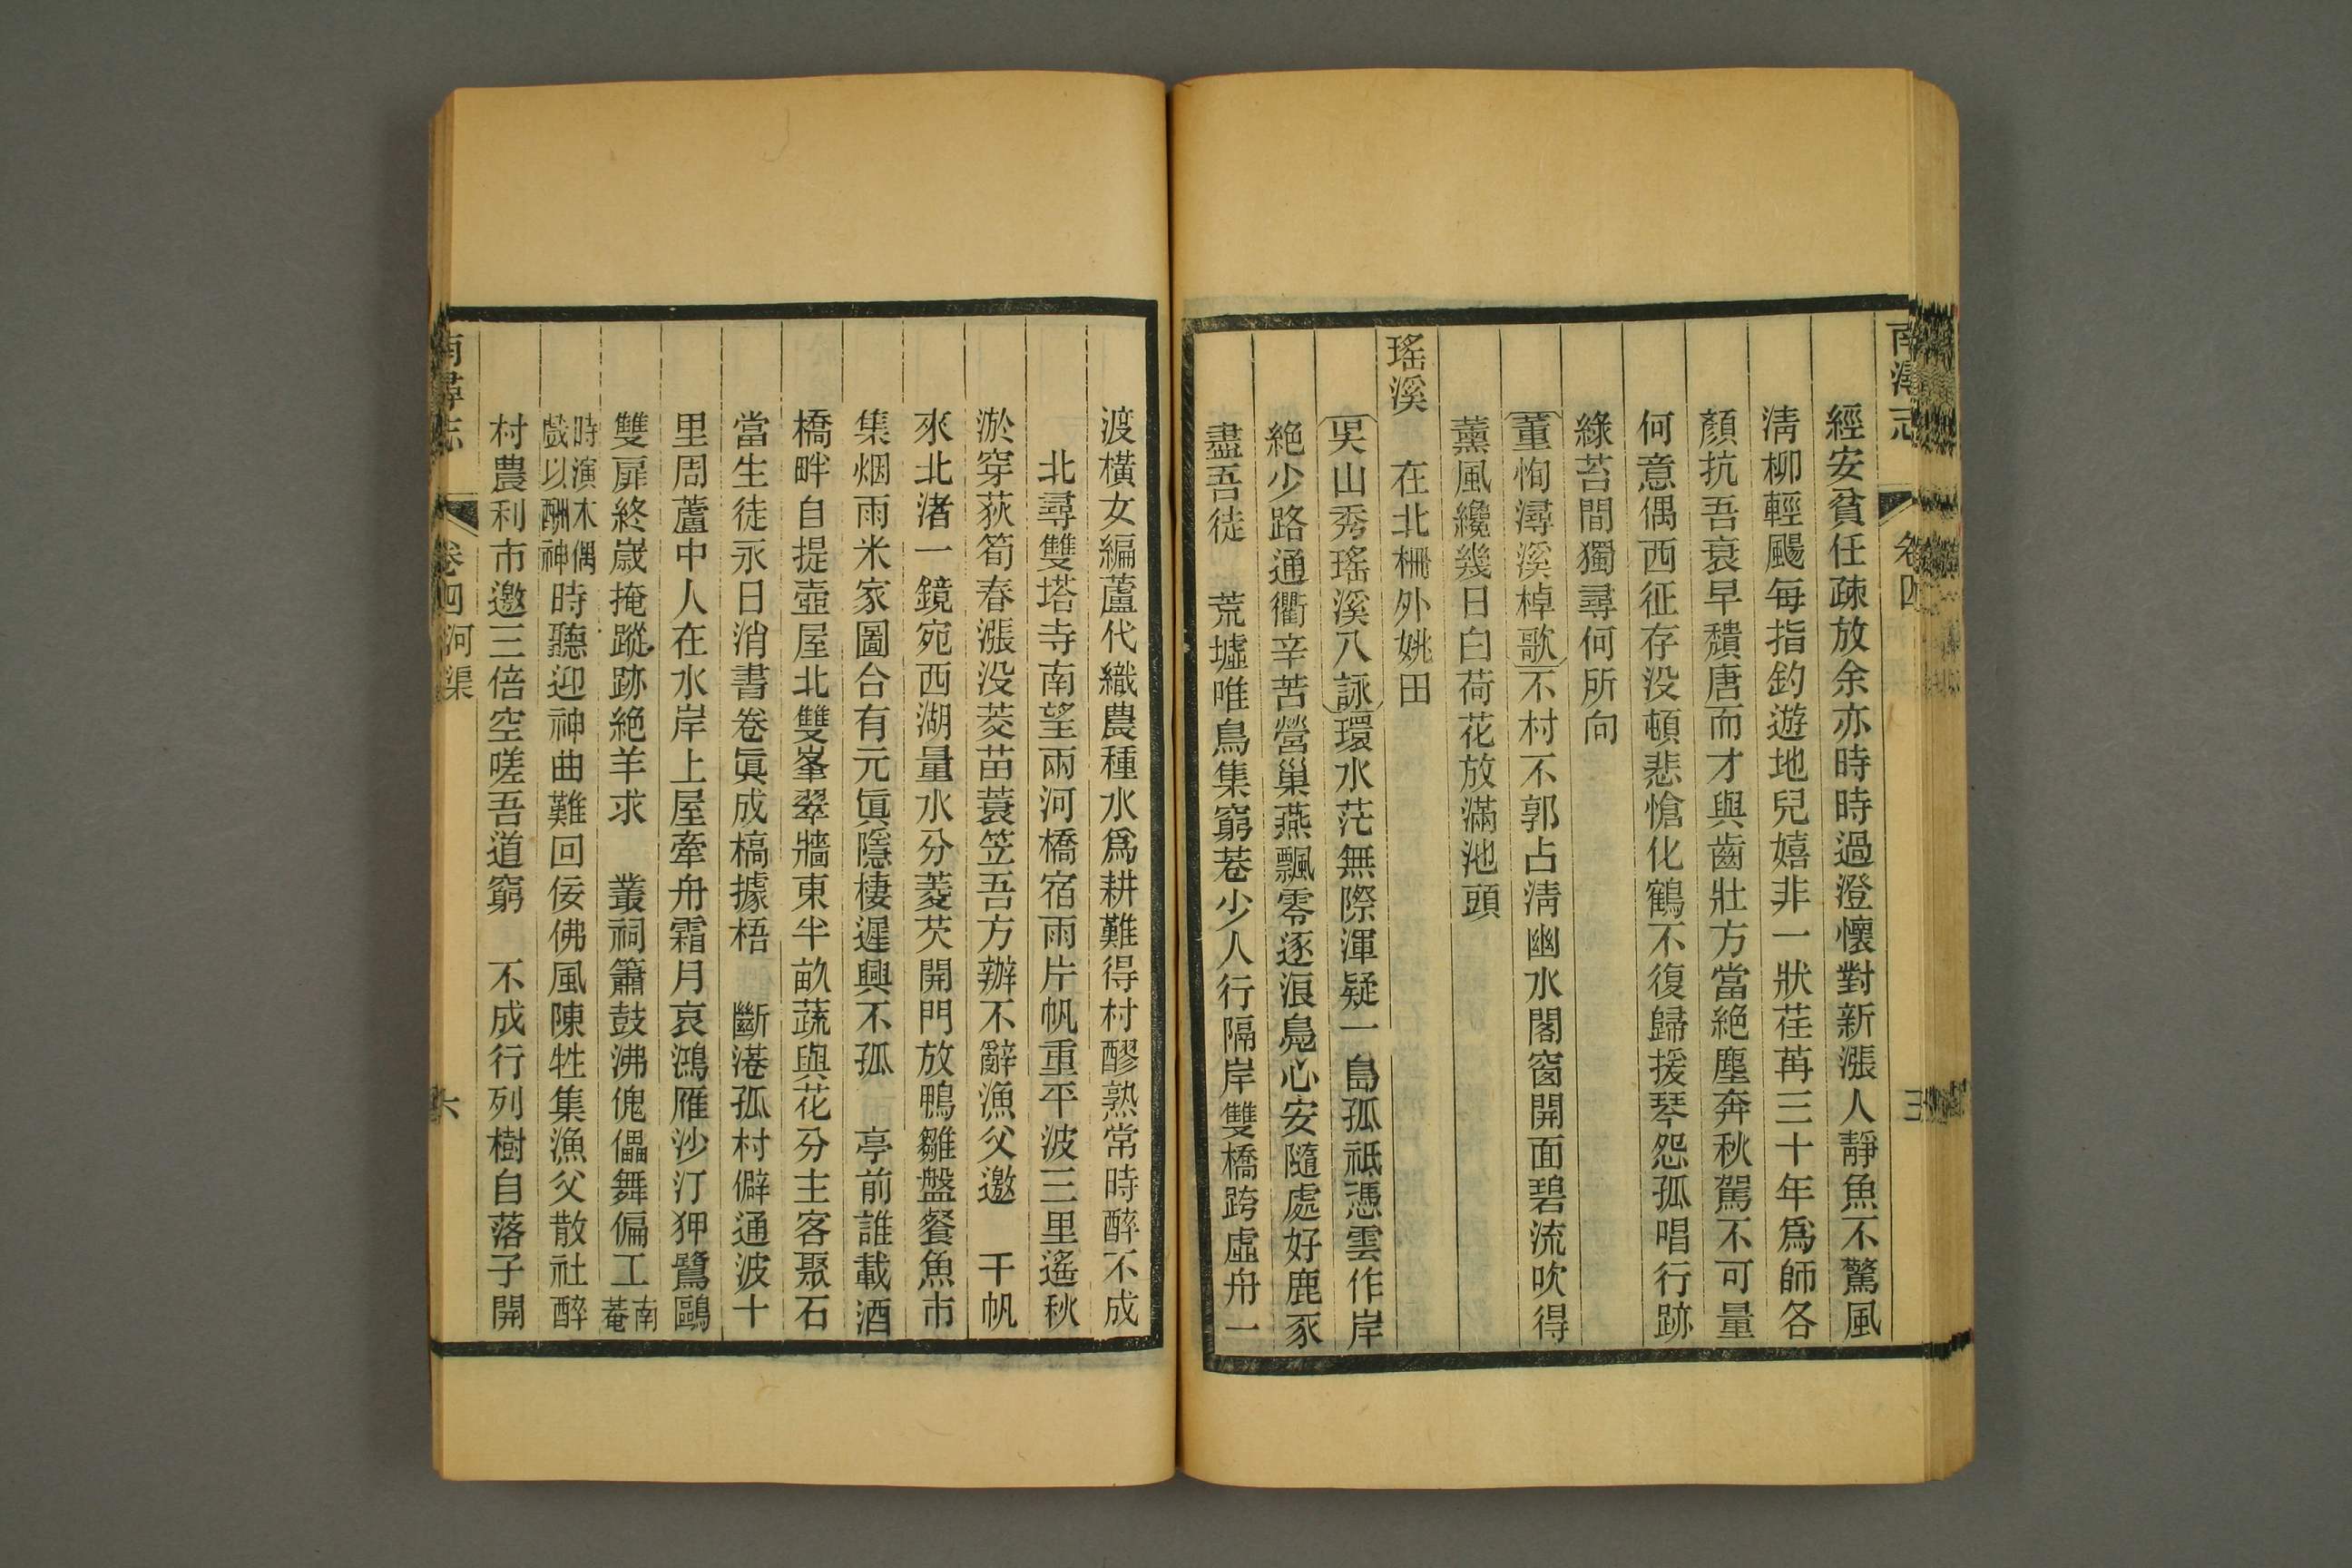 南潯志
卷四
三
經安貧任疎放余亦時時過澄懷對新漲人靜魚不驚風
淸柳輕颺每指釣遊地兒嬉非一狀荏苒三十年爲師各
顏抗吾衰早穨唐而才與齒壯方當絕塵奔秋駕不可量
何意偶西征存没頓悲愴化鶴不復歸援琴怨孤唱行跡
綠苔間獨尋何所向
董恂潯溪棹歌不村不郭占淸幽水閣窗開面碧流吹得
薰風纔幾日白荷花放滿池頭
瑤溪　在北柵外姚田
吳山秀瑤溪八詠環水茫無際渾疑一島孤祗憑雲作岸
絕少路通衢辛苦營巢燕飄零逐浪鳧心安隨處好鹿豕
盡吾徒　荒墟唯鳥集窮巷少人行隔岸雙橋跨虛舟一
渡橫女編蘆代織農種水爲耕難得村醪熟常時醉不成
北尋雙塔寺南望兩河橋宿雨片帆重平波三里遙秋
淤穿荻筍春漲没菱苗蓑笠吾方辦不辭漁父邀　千帆
來北渚一鏡宛西湖量水分菱芡開門放鴨雛盤餐魚市
集烟雨米家圖合有元眞隱棲遲興不孤　亭前誰載酒
橋畔自提壺屋北雙峯翠牆東半畝蔬與花分主客聚石
當生徒永日消書卷眞成槁據梧　斷港孤村僻通波十
里周蘆中人在水岸上屋牽舟霜月哀鴻雁沙汀狎鷺鷗
雙扉終嵗掩蹤跡絕羊求　叢祠簫鼓沸傀儡舞偏工南菴
時演木偶戯以酬神時聽迎神曲難回佞佛風陳牲集漁父散社醉
村農利市邀三倍空嗟吾道窮　不成行列樹自落子開
南潯志
卷四
河渠
六